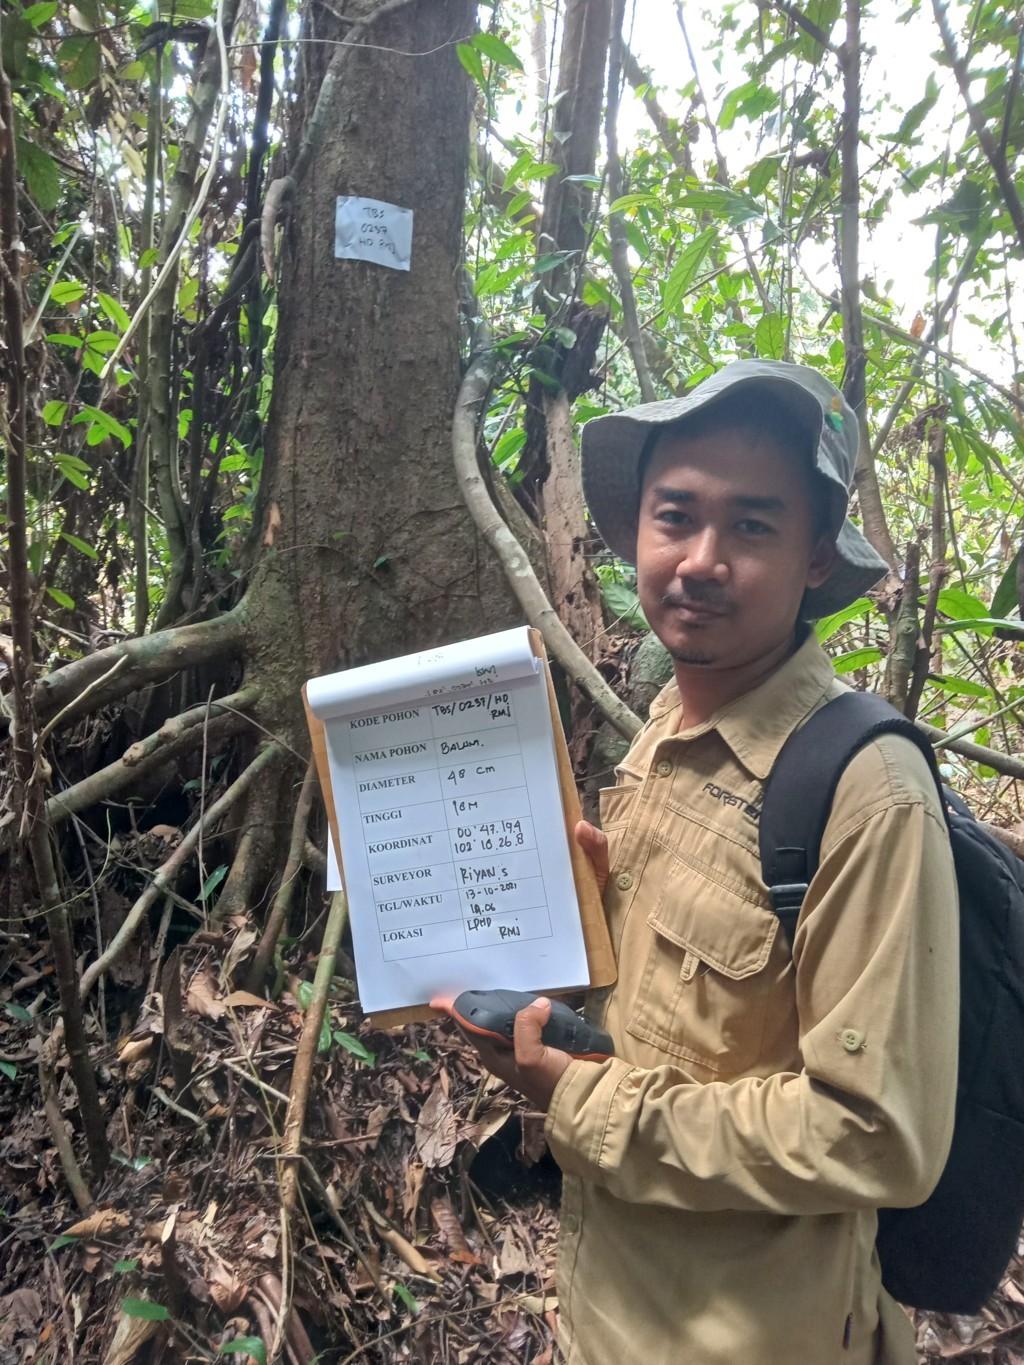 TBS
0237
HD RMJ
KODE POHON TBS/0237/HD
RMJ
NAMA POHON BALAM.
DIAMETER 48 cm
TINGGI 18 M
KOORDINAT 00°47.19.4
102°18.26.8
SURVEYOR RiYAN.S
TGL/WAKTU 13-10-2021
LOKASI LPHD
RMJ